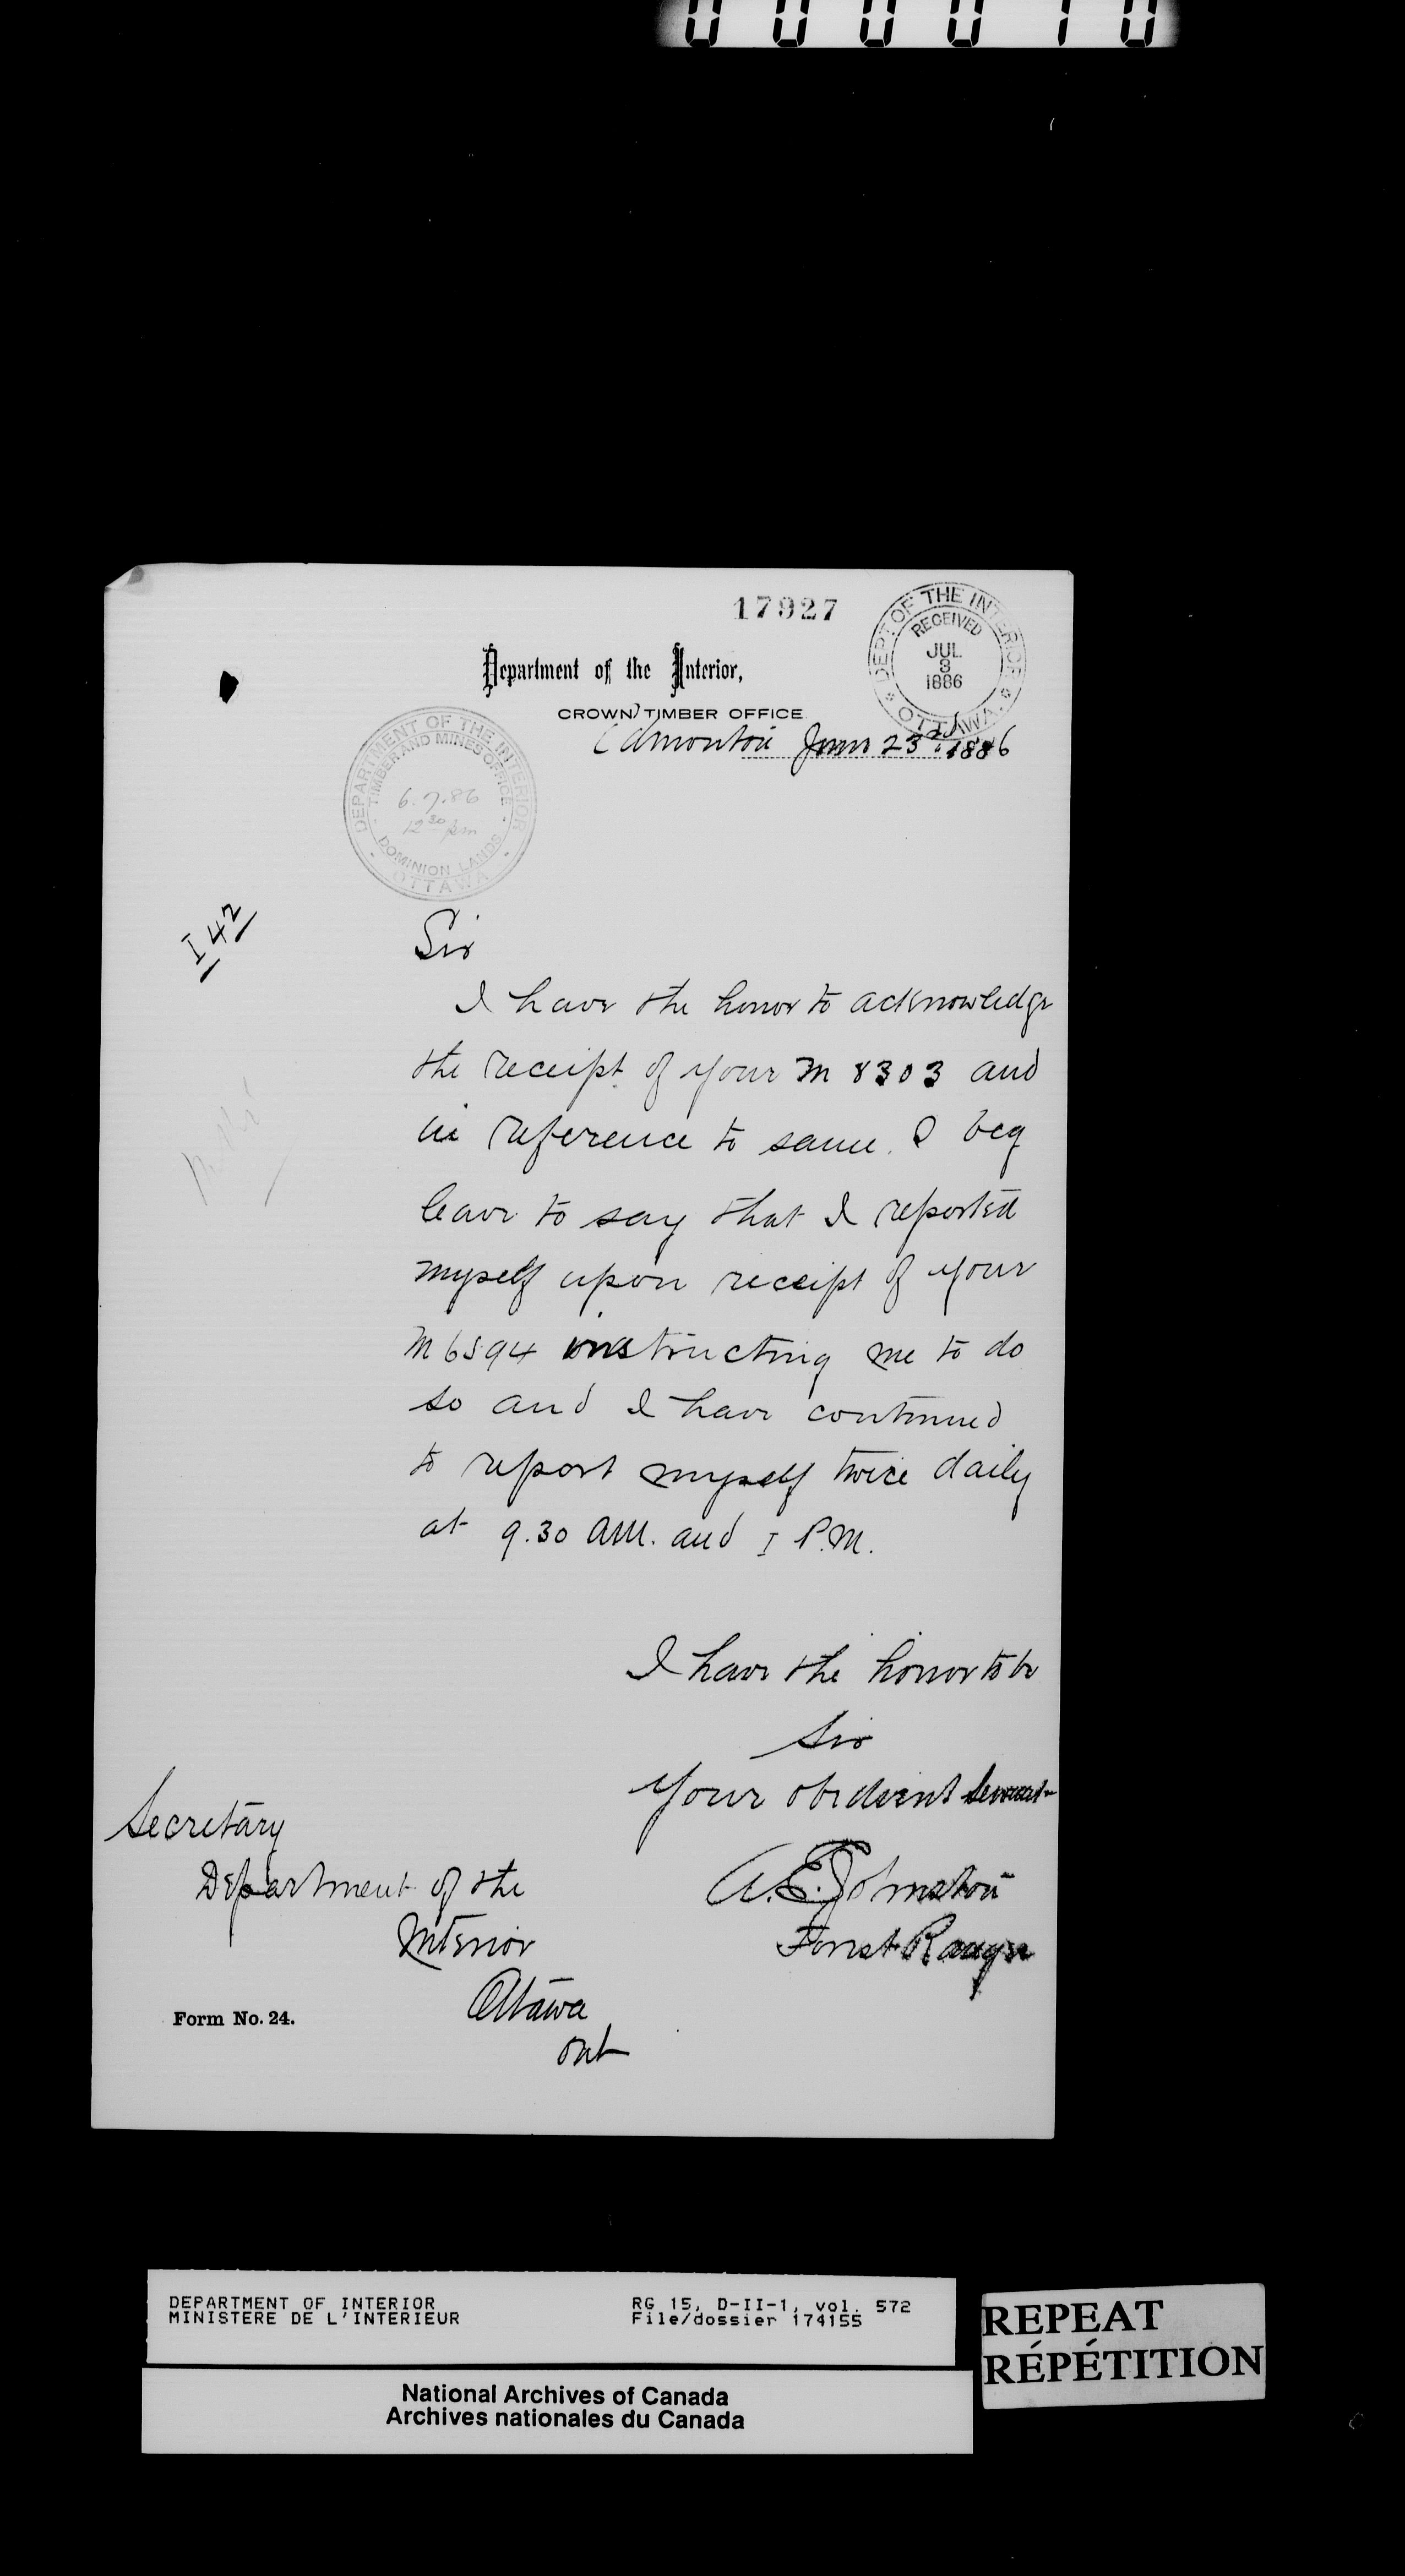 000010
17927
DEPT. OF THE INTERIOR
RECEIVED
JUL
3
1886
OTTAWA.
Department of the Interior,
CROWN TIMBER OFFICE
Edmonton June 23rd 1886
DEPARTMENT OF THE INTERIOR
TIMBER AND MINES OFFICE
6.7.86
12 30 pm
DOMINION LANDS
OTTAWA
I 42
Sir
I have the honor to acknowledge
the receipt of your M 8303 and
in reference to same. I beg
leave to say that I reported
myself upon receipt of your
M 6594 instructing me to do
so and I have continued
to report myself twice daily
at 9.30 AM. and 1 P.M.
I have the honor to be
Sir
Your obedient Servant
A.E. Johnston
Forest Ranger
Secretary
Department of the
Interior
Ottawa
Ont
Form No. 24.
DEPARTMENT OF INTERIOR
MINISTERE DE L'INTERIEUR
RG 15, D-II-1, vol. 572
File/dossier 174155
REPEAT
RÉPÉTITION
National Archives of Canada
Archives nationales du Canada